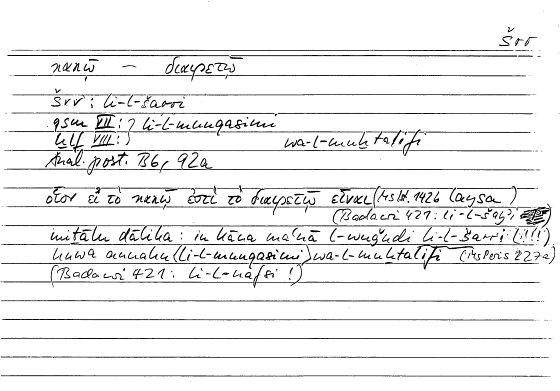 šrr
κακῷ — διαιρετῷ
šrr : li-l-šarri
qsm VII : } li-l-munqasimi
ḫlf VIII : } wa-l-muḫtalifi
Anal. post. B6, 92a
οἷον εἰ τὸ κακῷ ἐστὶ τὸ διαιρετῷ εἶναι (Ms Ist. 1426 laysa )
(Badawi 421 : li-l-šayʾi )
miṯālu ḏālika : in kāna maʿnā l-wuǧūdi li-l-šarri (!!!)
huwa annahu (li-l-munqasimi) wa-l-muḫtalifi (Ms Paris 227a)
(Badawi 421 : li-l-nafsi !)